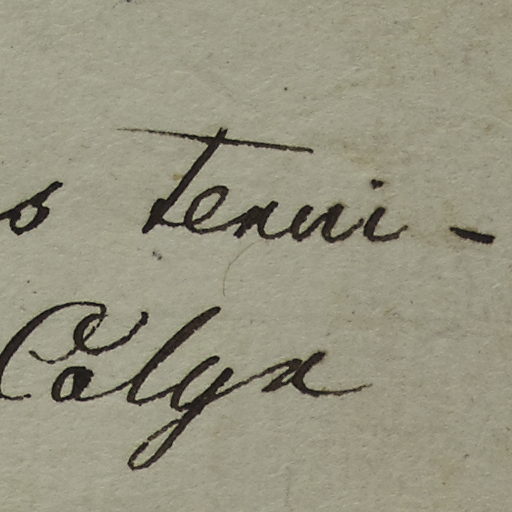 s tenui-
Calyx